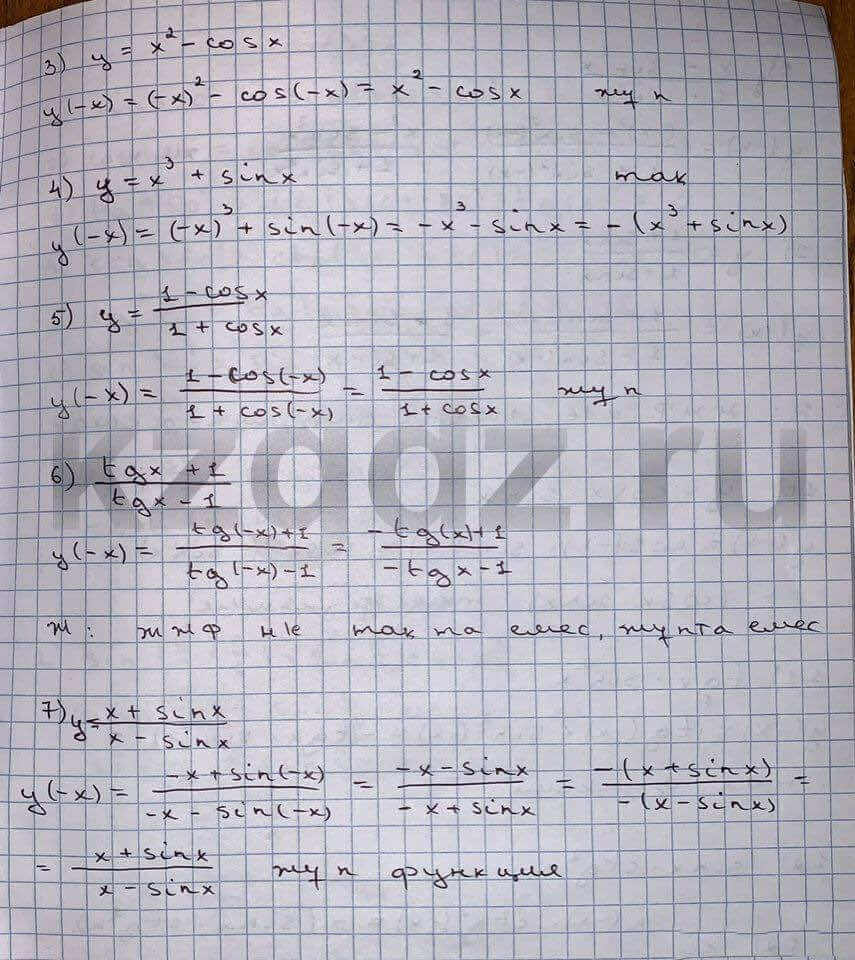 3) y = x² - cosx
y(-x) = (-x)² - cos(-x) = x² - cosx жұп
4) y = x³ + sinx тақ
y(-x) = (-x)³ + sin(-x) = -x³ - sinx = -(x³ + sinx)
5) y = (1 - cosx)/(1 + cosx)
y(-x) = (1 - cos(-x))/(1 + cos(-x)) = (1 - cosx)/(1 + cosx) жұп
kzgdz.ru
6) (tgx + 1)/(tgx - 1)
y(-x) = (tg(-x)+1)/(tg(-x)-1) = (-tg(x)+1)/(-tgx-1)
ж: тақ та емес, жұпта емес
7) y = (x + sinx)/(x - sinx)
y(-x) = (-x + sin(-x))/(-x - sin(-x)) = (-x - sinx)/(-x + sinx) = (-(x + sinx))/(-(x - sinx)) =
= (x + sinx)/(x - sinx) жұп функция